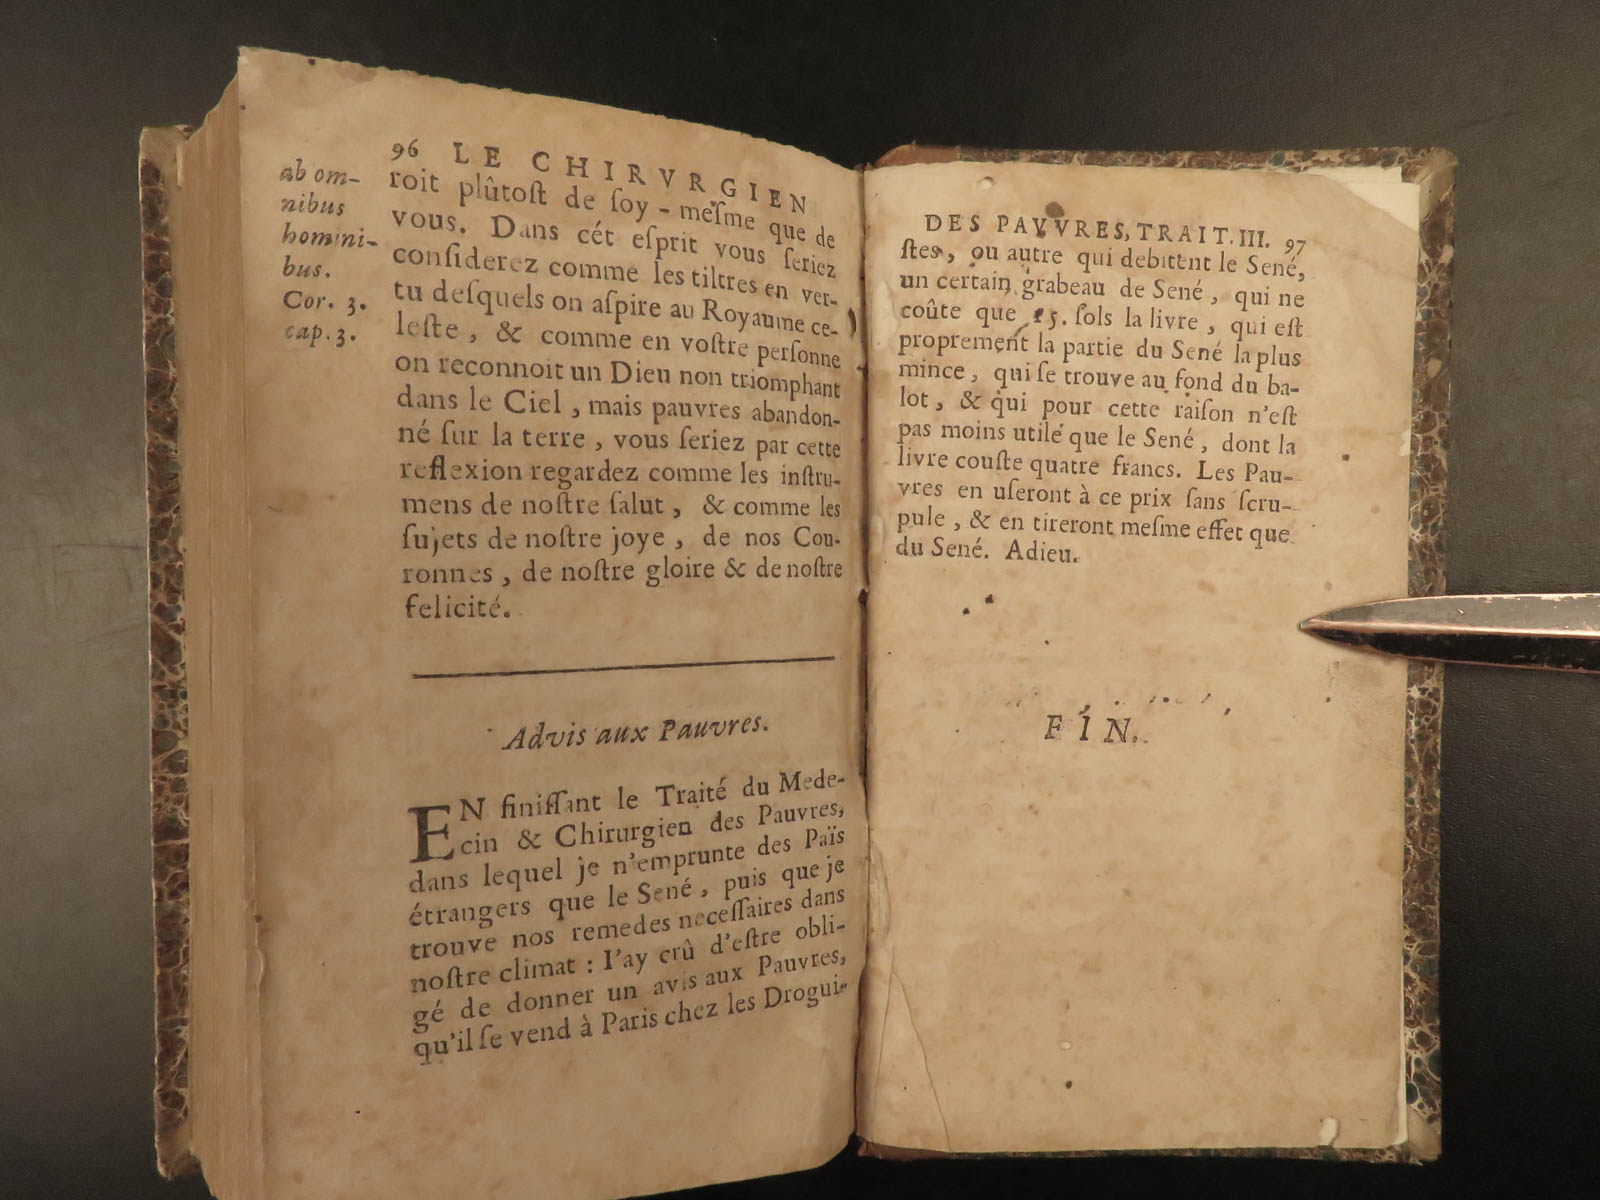 96 LE CHIRVRGIEN
ab om-
nibus
homini-
bus.
Cor. 3.
cap. 3.
roit plûtoſt de ſoy - meſme que de
vous. Dans cét eſprit vous ſeriez
conſiderez comme les tiltres en ver-
tu deſquels on aſpire au Royaume ce-
leſte, & comme en voſtre perſonne
on reconnoit un Dieu non triomphant
dans le Ciel, mais pauvres abandon-
né ſur la terre, vous ſeriez par cette
reflexion regardez comme les inſtru-
mens de noſtre ſalut, & comme les
ſujets de noſtre joye, de nos Cou-
ronnes, de noſtre gloire & de noſtre
felicité.
Advis aux Pauvres.
EN finiſſant le Traité du Mede-
cin & Chirurgien des Pauvres,
dans lequel je n'emprunte des Païs
étrangers que le Sené, puis que je
trouve nos remedes neceſſaires dans
noſtre climat : I'ay crû d'eſtre obli-
gé de donner un avis aux Pauvres,
qu'il ſe vend à Paris chez les Drogui-
DES PAVVRES, TRAIT. III. 97
ſtes, ou autre qui debittent le Sené,
un certain grabeau de Sené, qui ne
coûte que 15. ſols la livre, qui eſt
proprement la partie du Sené la plus
mince, qui ſe trouve au fond du ba-
lot, & qui pour cette raiſon n'eſt
pas moins utile que le Sené, dont la
livre couſte quatre francs. Les Pau-
vres en uſeront à ce prix ſans ſcru-
pule, & en tireront meſme effet que
du Sené. Adieu.
FIN.